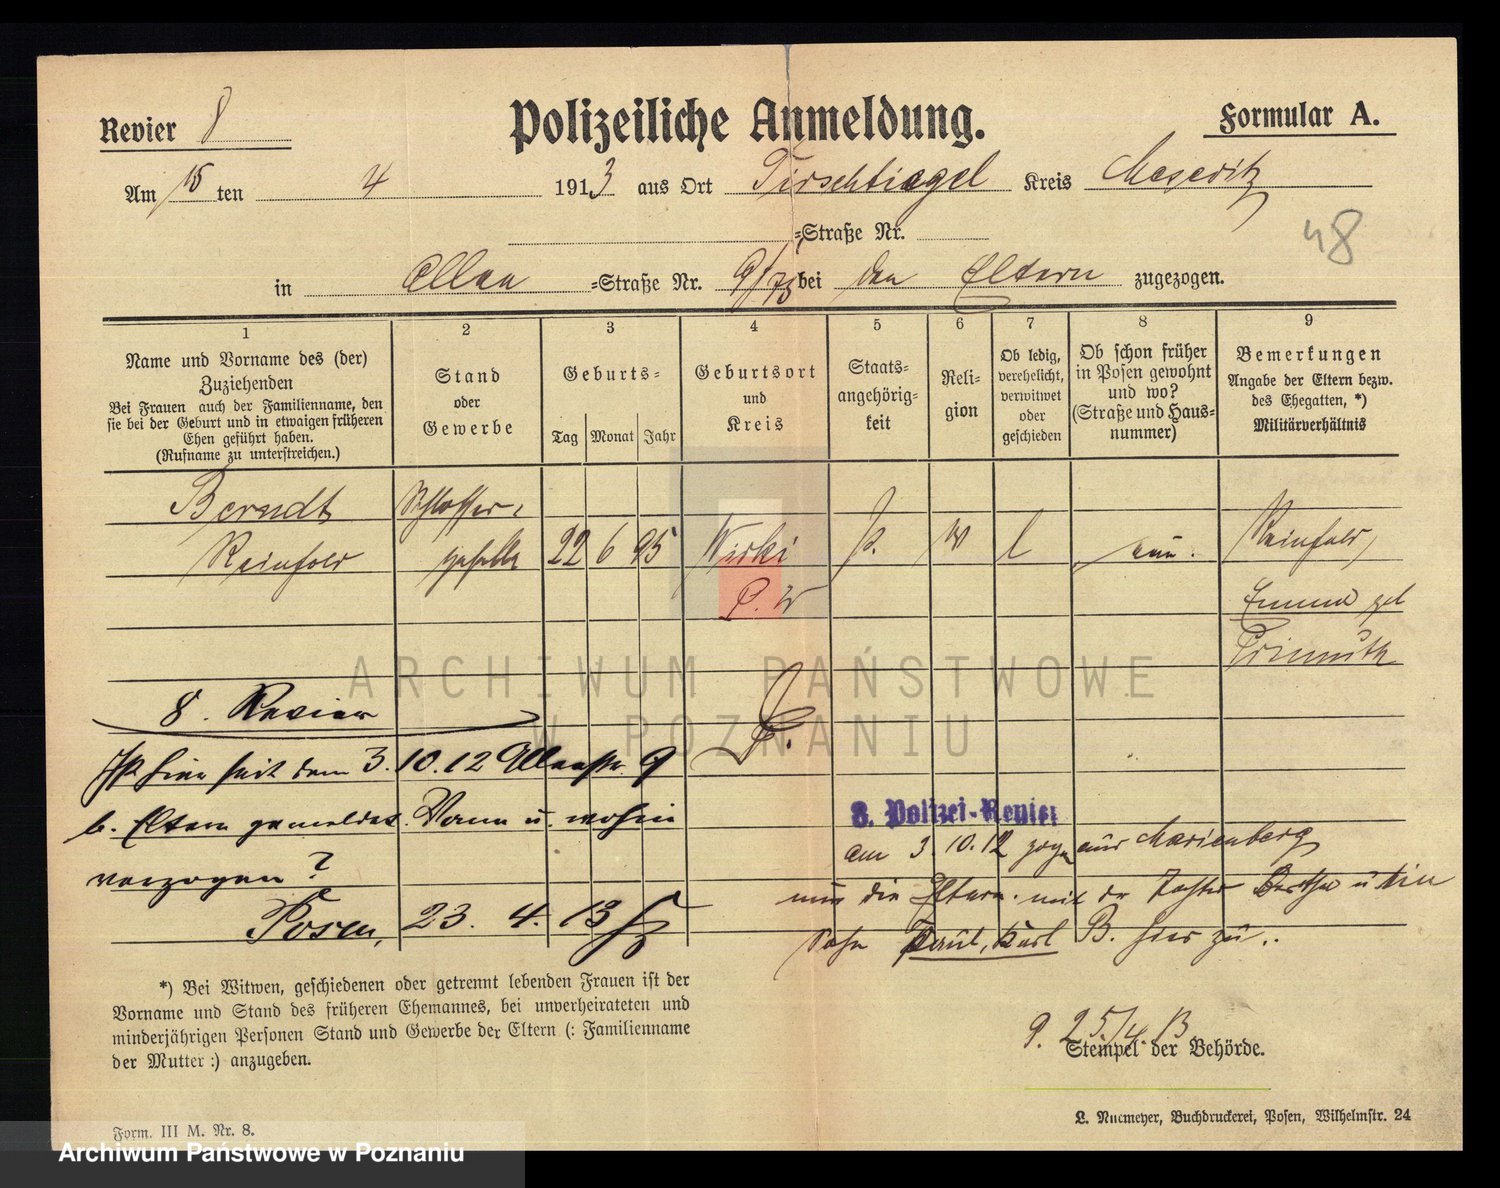 Revier 8
Polizeiliche Anmeldung.
Formular A.
Am 15 ten 4 1913 aus Ort Tirschtiegel Kreis Meseritz
=Straße Nr.
48
in =Straße Nr. 9/73 bei den Eltern zugezogen.
1
Name und Vorname des (der)
Zuziehenden
Bei Frauen auch der Familienname, den
sie bei der Geburt und in etwaigen früheren
Ehen geführt haben.
(Rufname zu unterstreichen.)
2
Stand
oder
Gewerbe
3
Geburts=
Tag Monat Jahr
4
Geburtsort
und
Kreis
5
Staats=
angehörig=
keit
6
Reli=
gion
7
Ob ledig,
verehelicht,
verwitwet
oder
geschieden
8
Ob schon früher
in Posen gewohnt
und wo?
(Straße und Haus=
nummer)
9
Bemerkungen
Angabe der Eltern bezw.
des Ehegatten, *)
Militärverhältnis
Berndt Schlosser=
Reinhold geselle 22 6 95 P. l Reinhold,
P. W
geb
8. Revier
Ist hier seit dem 3.10.12 9
b. Eltern gemeldet. Wann u. wohin
verzogen?
Posen, 23. 4. 13
8. Polizei-Revier
am 3.10.12 aus Marienberg
die Eltern mit der Tochter
Sohn Paul, Karl B. hier zu..
g. 25/4. 13
Stempel der Behörde.
*) Bei Witwen, geschiedenen oder getrennt lebenden Frauen ist der
Vorname und Stand des früheren Ehemannes, bei unverheirateten und
minderjährigen Personen Stand und Gewerbe der Eltern (: Familienname
der Mutter :) anzugeben.
Form. III M. Nr. 8.
L. Nuemeyer, Buchdruckerei, Posen, Wilhelmstr. 24
ARCHIWUM PAŃSTWOWE
W POZNANIU
Archiwum Państwowe w Poznaniu